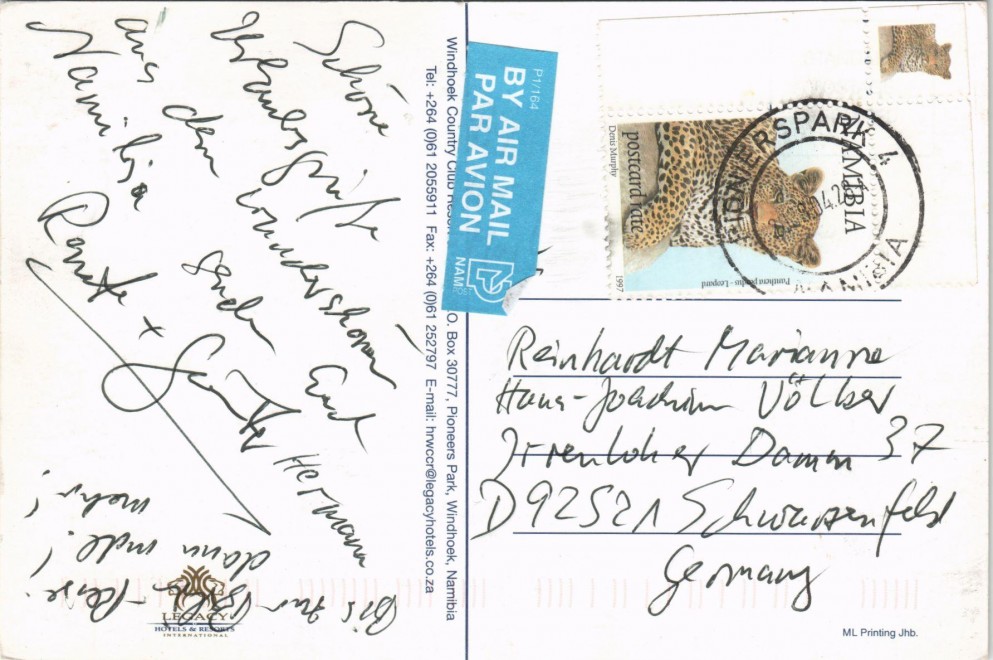 Schöne
Urlaubsgrüße
aus dem wunderschönen
Namibia senden Euch
Renate + Günther Hermann
Bis zur
dann mal!
mehr!
LEGACY
HOTELS & RESORTS
INTERNATIONAL
Windhoek Country Club Resort P.O. Box 30777, Pioneers Park, Windhoek, Namibia
Tel: +264 (0)61 2055911 Fax: +264 (0)61 252797 E-mail: hrwccr@legacyhotels.co.za
P1/164
BY AIR MAIL
PAR AVION
NAM
postcard rate
Denis Murphy
1997
Panthera pardus - Leopard
NAMIBIA
PIONIERSPARK
NAMIBIA
Reinhardt Marianne
Hans-Joachim Völker
Irrenloher Damm 37
D 92521 Schwarzenfeld
Germany
ML Printing Jhb.